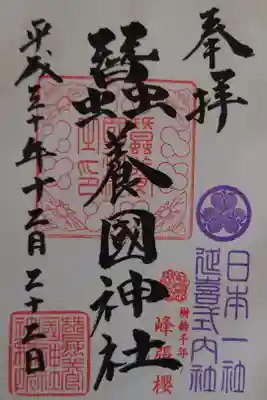 奉拝
蠶養國神社
平成三十年十二月二十二日
日本一社
延喜式内社
樹齢千年
峰張櫻